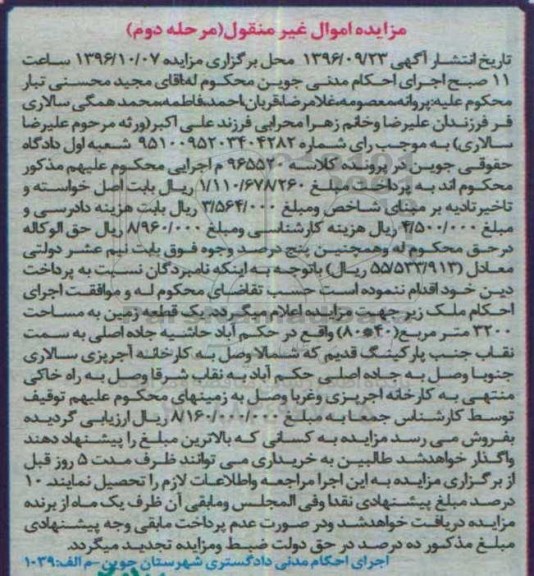 مزایده اموال غیر منقول(مرحله دوم)
تاریخ انتشار آگهی ۱۳۹۶/۰۹/۲۳ محل برگزاری مزایده ۱۳۹۶/۱۰/۰۷ ساعت
۱۱ صبح اجرای احکام مدنی جوین محکوم له:آقای مجید محسنی تبار
محکوم علیه:پروانه،معصومه،غلامرضا،قربان،احمد،فاطمه،محمد همگی سالاری
فر فرزندان علیرضا وخانم زهرا محرابی فرزند علی اکبر(ورثه مرحوم علیرضا
سالاری) به موجب رای شماره ۹۵۱۰۰۹۵۲۰۳۴۰۴۲۸۲ شعبه اول دادگاه
حقوقی جوین در پرونده کلاسه ۹۶۵۵۲۰ م اجرایی محکوم علیهم مذکور
محکوم اند به پرداخت مبلغ ۱/۱۱۰/۶۷۸/۲۶۰ ریال بابت اصل خواسته و
تاخیرتادیه بر مبنای شاخص ومبلغ ۳/۵۶۴/۰۰۰ ریال بابت هزینه دادرسی و
مبلغ ۴/۵۰۰/۰۰۰ ریال هزینه کارشناسی ومبلغ ۸/۹۶۰/۰۰۰ ریال حق الوکاله
درحق محکوم له وهمچنین پنج درصد وجوه فوق بابت نیم عشر دولتی
معادل (۵۵/۵۳۳/۹۱۳ ریال) باتوجه به اینکه نامبردگان نسبت به پرداخت
دین خود اقدام ننموده است حسب تقاضای محکوم له و موافقت اجرای
احکام ملک زیر جهت مزایده اعلام میگردد.یک قطعه زمین به مساحت
۳۲۰۰ متر مربع(۴۰*۸۰) واقع در حکم آباد حاشیه جاده اصلی به سمت
نقاب جنب پارکینگ قدیم که شمالا وصل به کارخانه آجرپزی سالاری
جنوبا وصل به جاده اصلی حکم آباد به نقاب شرقا وصل به راه خاکی
منتهی به کارخانه اجرپزی وغربا وصل به زمینهای محکوم علیهم توقیف
توسط کارشناس جمعا به مبلغ ۸/۱۶۰/۰۰۰/۰۰۰ ریال ارزیابی گردیده
بفروش می رسد مزایده به کسانی که بالاترین مبلغ را پیشنهاد دهند
واگذار خواهدشد طالبین به خریداری می توانند ظرف مدت ۵ روز قبل
از برگزاری مزایده به این اجرا مراجعه واطلاعات لازم را تحصیل نمایند. ۱۰
درصد مبلغ پیشنهادی نقدا وفی المجلس ومابقی آن ظرف یک ماه از برنده
مزایده دریافت خواهدشد ودر صورت عدم پرداخت مابقی وجه پیشنهادی
مبلغ مذکور ده درصد در حق دولت ضبط ومزایده تجدید میگردد.
اجرای احکام مدنی دادگستری شهرستان جوین -م الف:۱۰۳۹